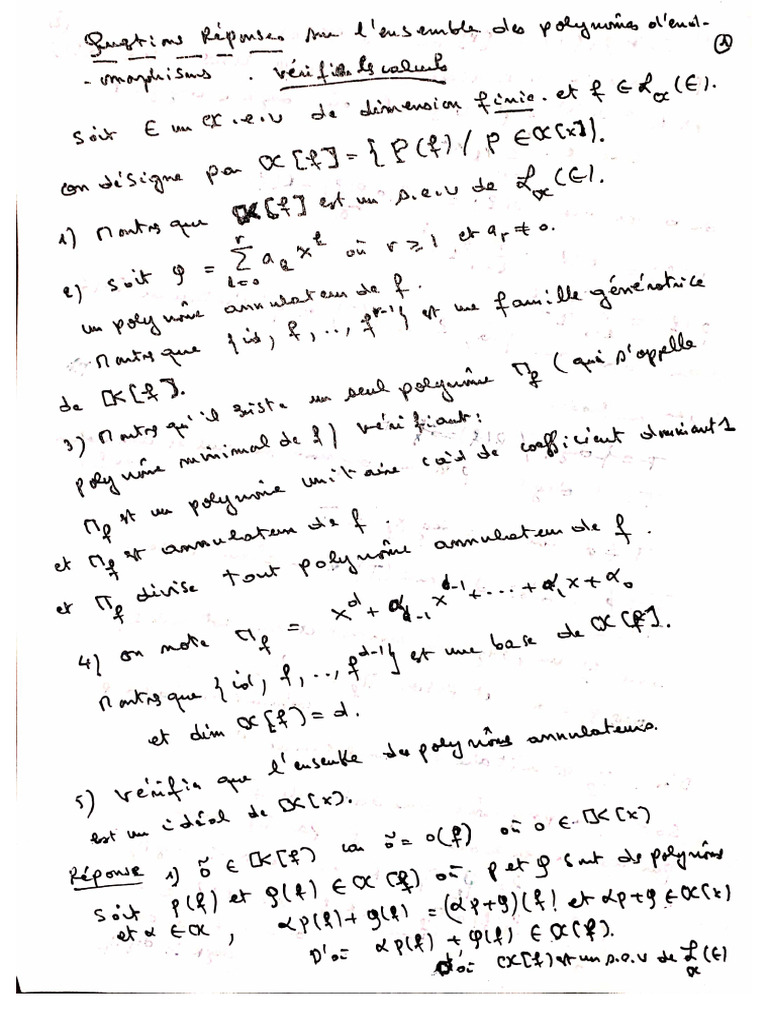 Questions Réponses sur l'ensemble des polynômes d'endo-
-morphismes . vérifie les calculs
①
Soit E un K.e.v de dimension finie. et f ∈ ℒ_K(E).
on désigne par K[f] = { P(f) / P ∈ K[x]}.
1) Montrer que K[f] est un s.e.v de ℒ_K(E).
2) Soit φ = Σ_{k=0}^{r} a_k x^k où r ≥ 1 et a_r ≠ 0.
un polynôme annulateur de f.
Montrer que {id, f, .., f^{r-1}} est une famille génératrice
de K[f].
3) Montrer qu'il existe un seul polynôme Π_f (qui s'appelle
polynôme minimal de f) vérifiant :
Π_f est un polynôme unitaire càd de coefficient dominant 1
et Π_f est annulateur de f .
et Π_f divise tout polynôme annulateur de f .
4) on note Π_f = x^d + α_{d-1} x^{d-1} + ... + α_1 x + α_0
Montrer que {id, f, .., f^{d-1}} est une base de K[f].
et dim K[f] = d.
5) Vérifie que l'ensemble des polynômes annulateurs.
est un idéal de K[x].
Réponse 1) õ ∈ K[f] car õ = 0(f) où 0 ∈ K[x]
Soit P(f) et φ(f) ∈ K[f] où P et φ sont des polynômes
et α ∈ K, αP(f) + φ(f) = (αP+φ)(f) et αP+φ ∈ K[x]
D'où αP(f) + φ(f) ∈ K[f].
d'où K[f] est un s.e.v de ℒ_K(E)